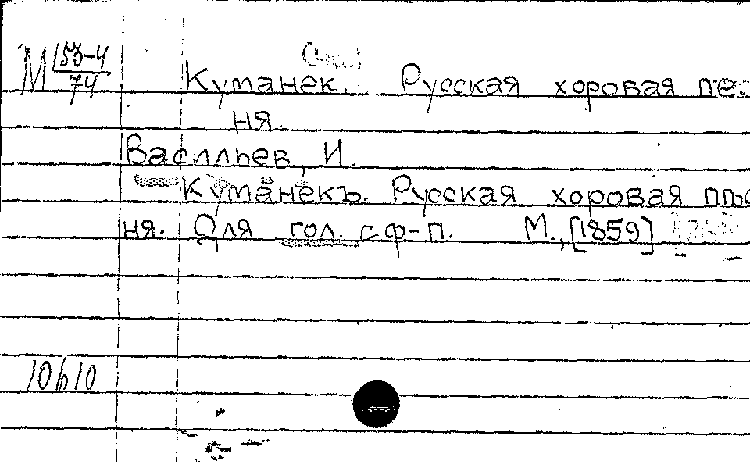 М 153-4
74
Куманек. Русская хоровая пес
ня.
Васильев, И.
Куманекъ. Русская хоровая пѣс
ня. Для гол. с ф-п. М., [1859]
10610